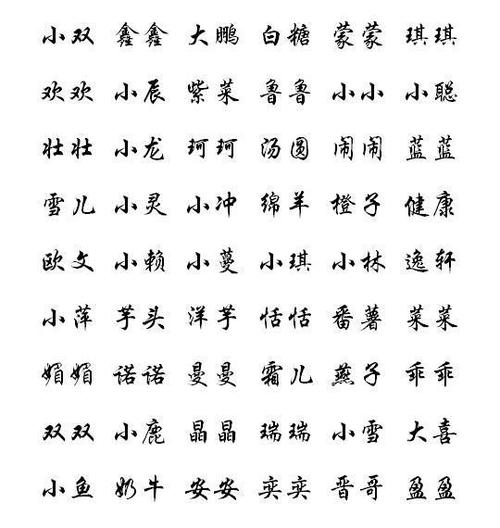 小双 鑫鑫 大鹏 白糖 蒙蒙 琪琪
欢欢 小辰 紫菜 鲁鲁 小小 小聪
壮壮 小龙 珂珂 汤圆 闹闹 蓝蓝
雪儿 小灵 小冲 绵羊 橙子 健康
欧文 小赖 小蔓 小琪 小林 逸轩
小萍 芋头 洋芋 恬恬 番薯 菜菜
媚媚 诺诺 曼曼 霜儿 燕子 乖乖
双双 小鹿 晶晶 瑞瑞 小雪 大喜
小鱼 奶牛 安安 奕奕 晋哥 盈盈